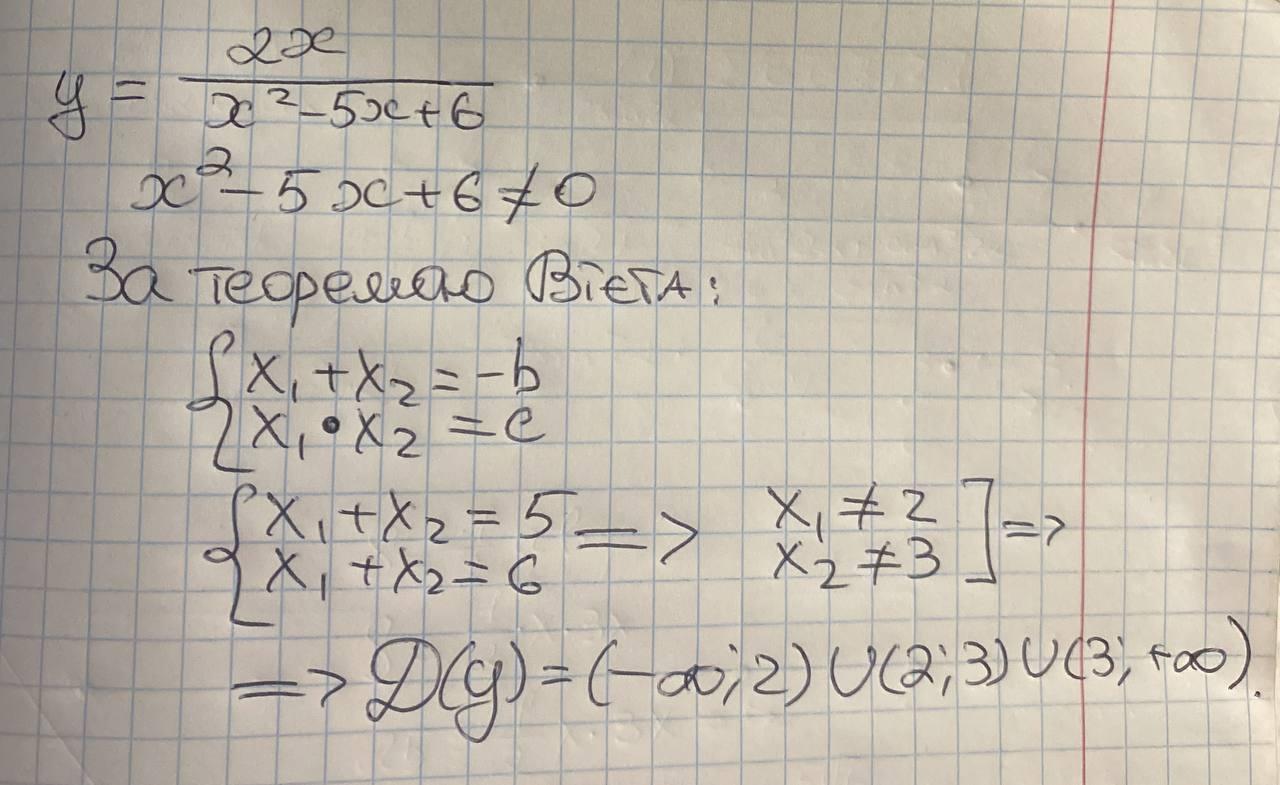 y = 2x / (x² - 5x + 6)
x² - 5x + 6 ≠ 0
За теоремою Вієта:
{ x₁ + x₂ = -b
x₁ • x₂ = c
{ x₁ + x₂ = 5 => x₁ ≠ 2 ] =>
x₁ + x₂ = 6 x₂ ≠ 3
=> D(y) = (-∞; 2) ∪ (2; 3) ∪ (3; +∞).